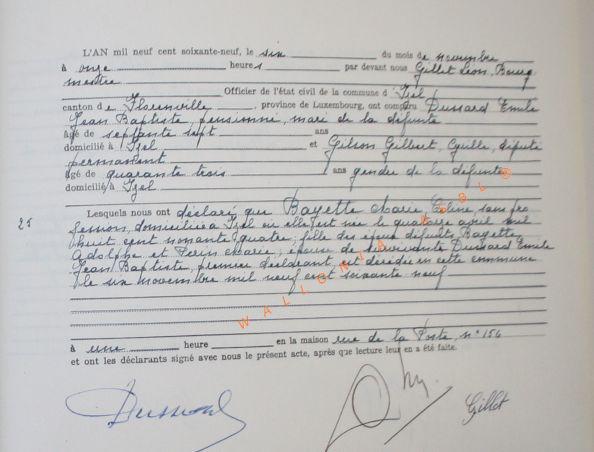 L'AN mil neuf cent soixante-neuf, le six du mois de novembre
à onze heures par devant nous Gillet Léon, Bourg
mestre
Officier de l'état civil de la commune d'Izel
canton de Florenville, province de Luxembourg, ont comparu Dussard Emile
Jean Baptiste, pensionné, mari de la défunte
âgé de septante sept ans
domicilié à Izel et Gilson Gilbert, député
permanent
âgé de quarante trois ans gendre de la défunte
domicilié à Izel
25
Lesquels nous ont déclaré que Bayette Marie, Céline sans pro
fession, domiciliée à Izel où elle est née le quatorze avril mil
huit cent nonante quatre, fille des époux défunts Bayette
Adolphe et Marie, épouse de survivante Dussard Emile
Jean Baptiste, premier déclarant, est décédée en cette commune
le six novembre mil neuf cent soixante neuf
à une heure en la maison rue de la Poste, n° 154
et ont les déclarants signé avec nous le présent acte, après que lecture leur en a été faite.
Dussard
Gillet